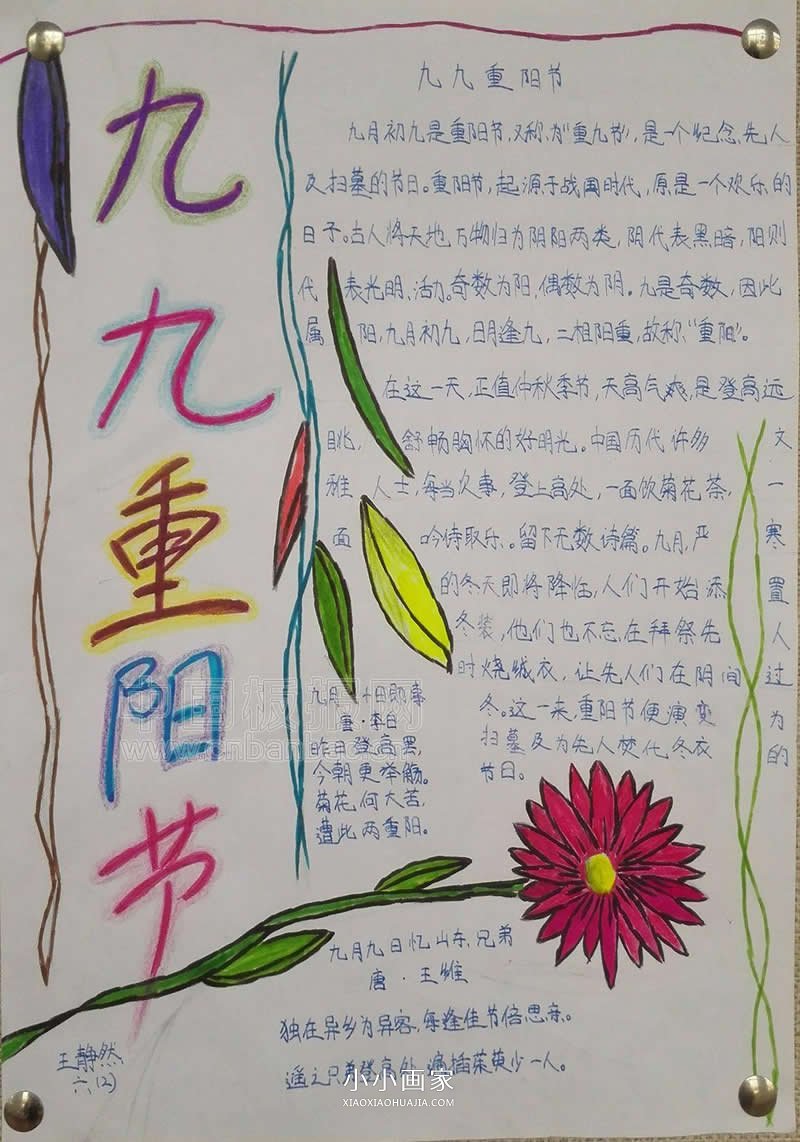 九九重阳节
九九重阳节
九月初九是重阳节,又称为"重九节",是一个纪念先人
及扫墓的节日。重阳节,起源于战国时代,原是一个欢乐的
日子。古人将天地,万物归为阴阳两类,阴代表黑暗,阳则
代表光明、活力。奇数为阳,偶数为阴。九是奇数,因此
属阳,九月初九,日月逢九,二相阳重,故称"重阳"。
在这一天,正值仲秋季节,天高气爽,是登高远
眺,舒畅胸怀的好时光。中国历代许多文
雅人士,每当次事,登上高处,一面饮菊花茶,一
面吟诗取乐。留下无数诗篇。九月,严寒
的冬天即将降临,人们开始添置
冬装,他们也不忘在拜祭先人
时烧城衣,让先人们在阴间过
冬。这一来,重阳节便演变为
扫墓及为先人焚化冬衣的
节日。
九月十日即事
唐·李白
昨日登高罢,
今朝更举觞。
菊花何大苦,
遭此两重阳。
九月九日忆山东兄弟
唐·王维
独在异乡为异客,每逢佳节倍思亲。
遥之兄弟登高处,遍插茱萸少一人。
王静然
六(2)
小小画家
XIAOXIAOHUAJIA.COM